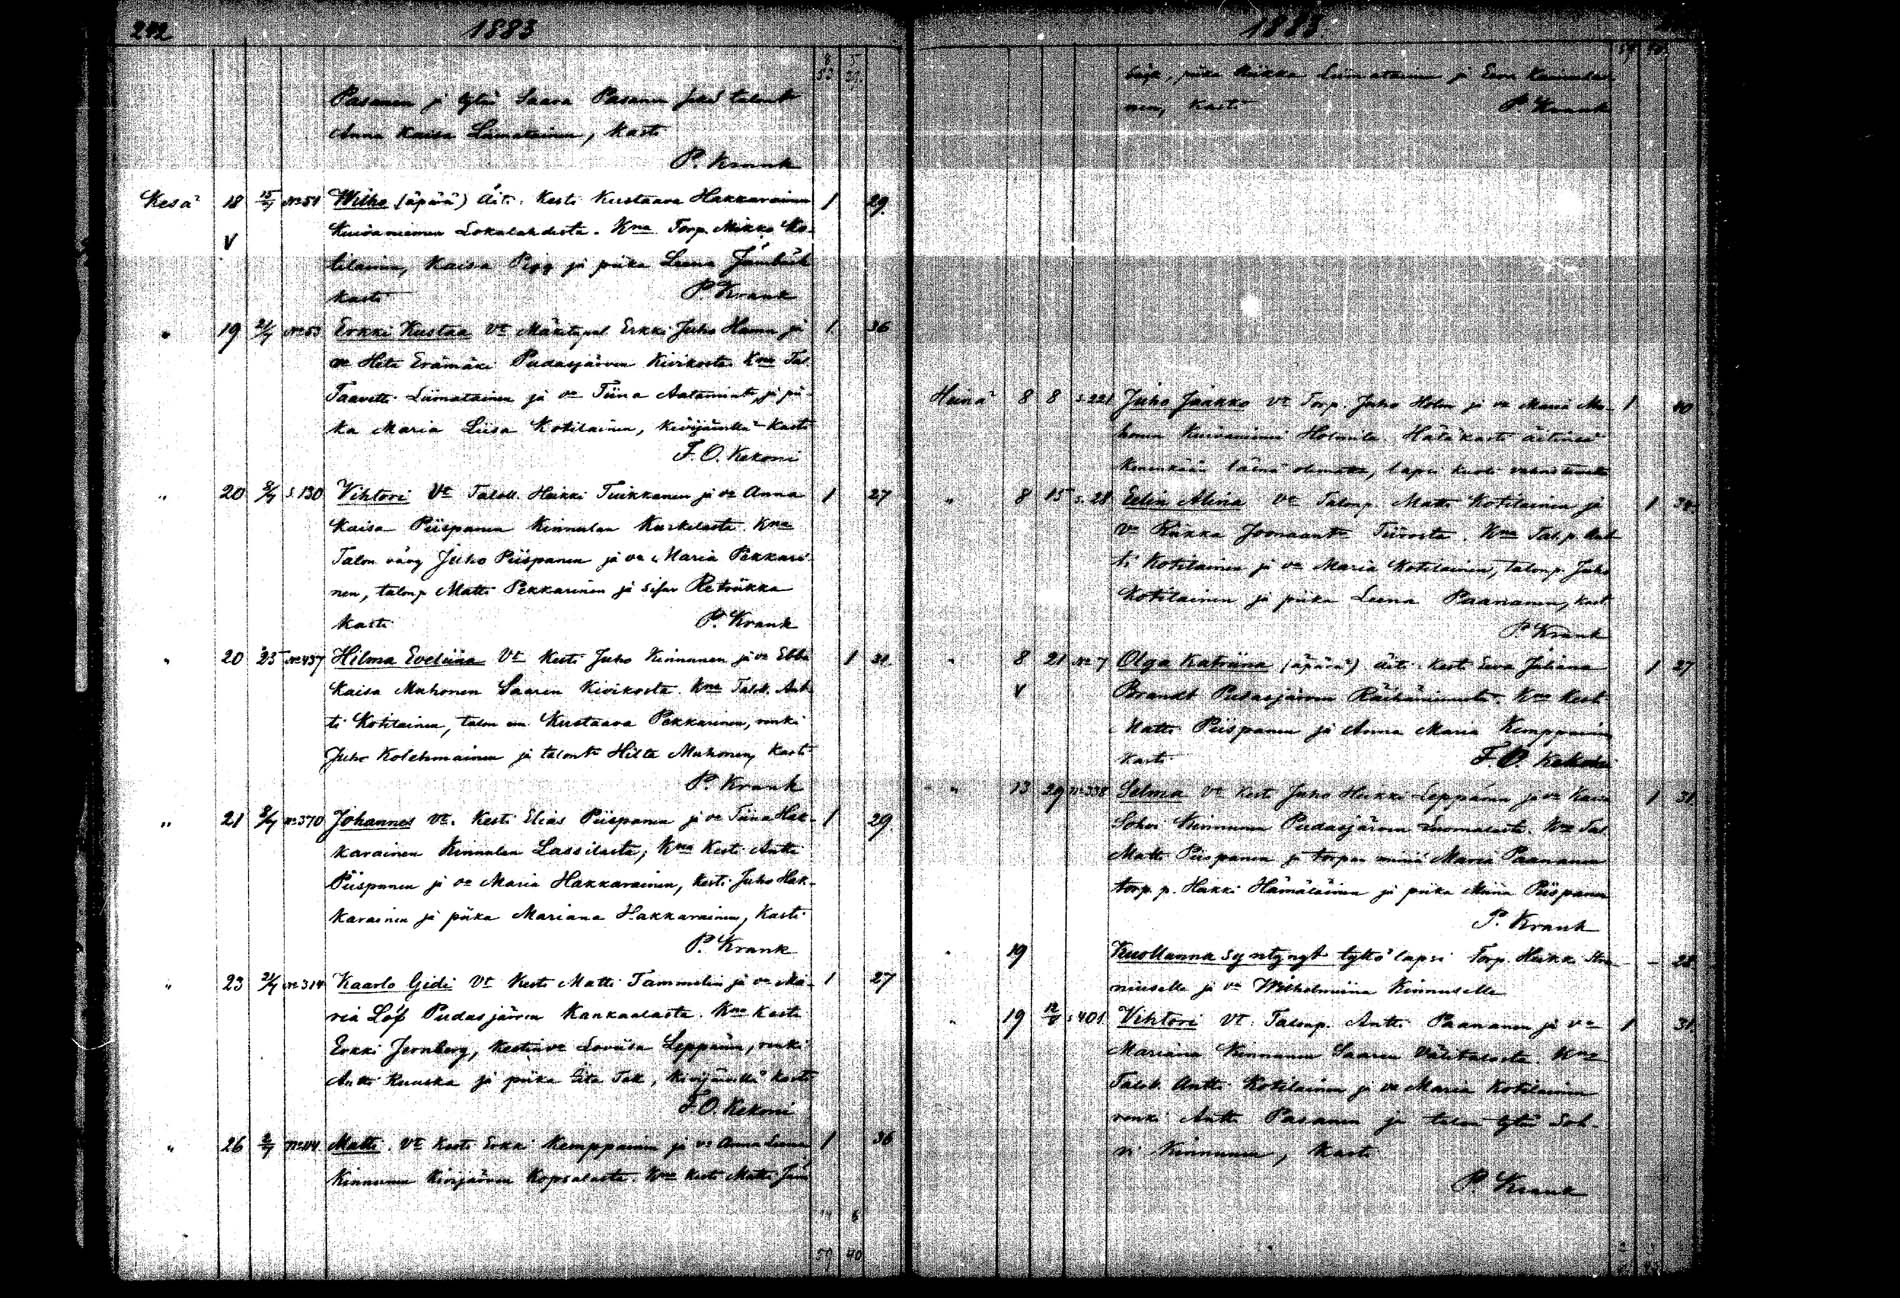 242 1883
Pasanen ja tytär Saara Pasanen talont
Anna Kaisa Liimatainen, Kasti
P. Krank
Kesä 18 15/7 No 51 Wilho (äpärä) Äiti. Kesti Kustaava Hakkarainen 1 29
Kuivaniemen Lokalahdesta. Kna Torp. Mikko Ko-
tilainen, Kaisa Pigg ja piika Leena Jämbäck
kasti P. Krank
" 19 2/7 No 53 Erkki Kustaa Vt Mäkitupal Erkki Juho Hamu ja 1 36
va Heta Erämäki Pudasjärven Kivikosta Kna Tal.
Taavetti Liimatainen ja va Tiina Aatamint, ja pii-
ka Maria Liisa Kotilainen, Kivijärvellä Kasti
F. O. Kekoni
" 20 8/7 s. 130 Vihtori Vt Taloll. Heikki Tuikkanen ja va Anna 1 27
Kaisa Piispanen Kinnulan Kuskelasta. Kna
Talon vävy Juho Piispanen ja va Maria Pekkari-
nen, talonp Matti Pekkarinen ja sisar Retriikka
kasti P. Krank
" 20 25 No 437 Hilma Eveliina Vt Kesti Juho Kinnunen ja va Ebba 1 31
Kaisa Muhonen Saaren Kivikosta. Kna Talol. Ant-
ti Kotilainen, talon em Kustaava Pekkarinen, renki
Juho Kolehmainen ja talont Hilta Muhonen, Kasti
P. Krank
" 21 8/7 No 370 Johannes Vt. Kesti Elias Piispanen ja va Tiina Hak- 1 29
karainen Kinnulan Lassilasta; Kna Kesti Antti
Piispanen ja va Maria Hakkarainen, Kesti Juho Hak-
karainen ja piika Mariana Hakkarainen, Kasti
P. Krank
" 23 2/7 No 314 Kaarlo Gidi Vt Kesti Matti Tammelin ja va Ma- 1 27
ria Löf Pudasjärven Kankaalasta. Kna Kesti
Erkki Jernberg, Kestinva Loviisa Leppänen, renki
Antti Ruuska ja piika Gita Tak, Kivijärvellä Kasti
F. O. Kekoni
" 26 8/7 No 44 Matti. Vt Kesti Erkki Kemppainen ja va Anna Leena 1 36
Kinnunen Kivijärven Kopsalasta. Kna Kesti Matti Jäm
14 6
57 40
1883
bäck, piika Riikka Liimatainen ja Eeva Kainulai-
nen, Kasti P. Krank
Heinä 8 8 s. 221 Juho Jaakko Vt Torp. Juho Holm ja va Maria Mu- 1 40
honen Kuivaniemi Holmila. Hätäkasti äitinsä
kenenkään läsnä olematta, lapsi kuoli
" 8 15 s. 28 Eelin Alina Vt Talonp. Matti Kotilainen ja 1 34
va Riikka Joonaant Tiirosta. Kna Tal.p. Ant-
ti Kotilainen ja va Maria Kotilainen, talonp. Juho
Kotilainen ja piika Leena Paananen, kast
P Krank
" 8 21 No 7 Olga Katriina (äpärä) Äiti. Kesti Eeva Juliana 1 27
Brandt Pudasjärven Räihäniemestä. Kna Kesti
Matti Piispanen ja Anna Maria Kemppainen
kasti F. O. Kekoni
" 13 29 No 338 Selma Vt Kesti Juho Heikki Leppänen ja va Kaisa 1 31.
Sohvi Kinnunen Pudasjärven Luomalasta. Kna Tal
Matti Piispanen ja torpan miniä Maria Paananen
torp. p. Heikki Hämäläinen ja piika Miina Piispanen
P. Krank
" 19 Kuollunna syntynyt tyttö lapsi Torp. Heikki - 28
niuselle ja va Wilhelmiina Kinnuselle
" 19 12/8 s 401. Vihtori Vt. Talonp. Antti Paananen ja va 1 31.
Mariana Kinnunen Saaren Välitalosta. Kna
Talol. Antti Kotilainen ja va Maria Kotilainen
renki Antti Pasanen ja talon tytär Soh-
vi Kinnunen, Kasti
P. Krank